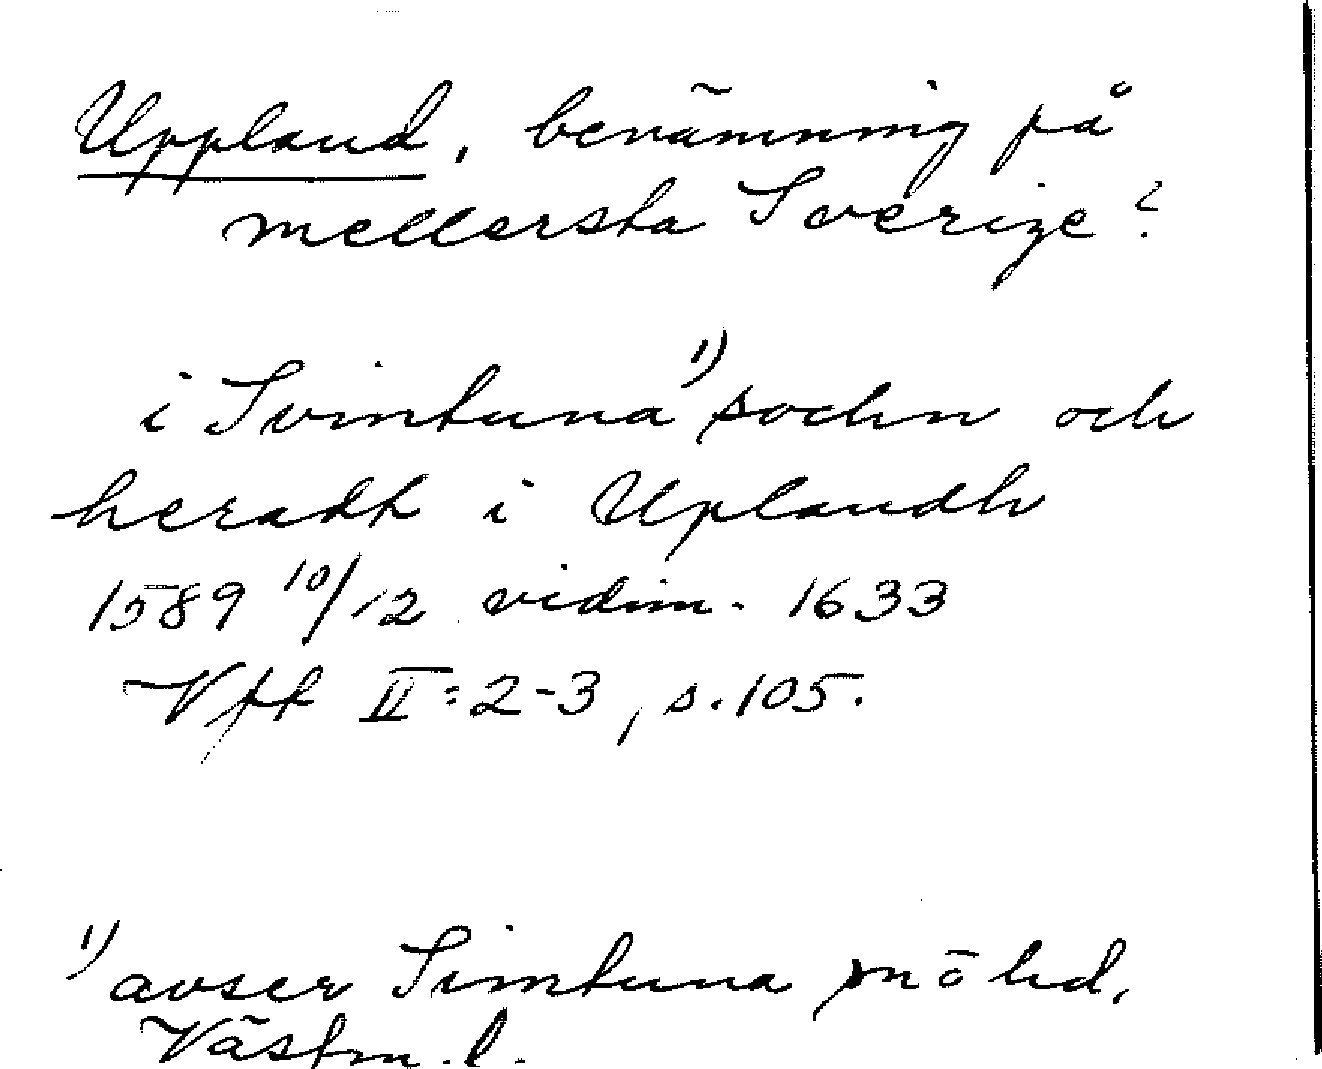 Uppland, benämning på
mellersta Sverige?
i Svintuna 1) sochn och
heradt i Uplandh
1589 10/12 vidim. 1633
Vff II:2-3, s.105.
1) avser Simtuna sn o hd,
Västm. l.